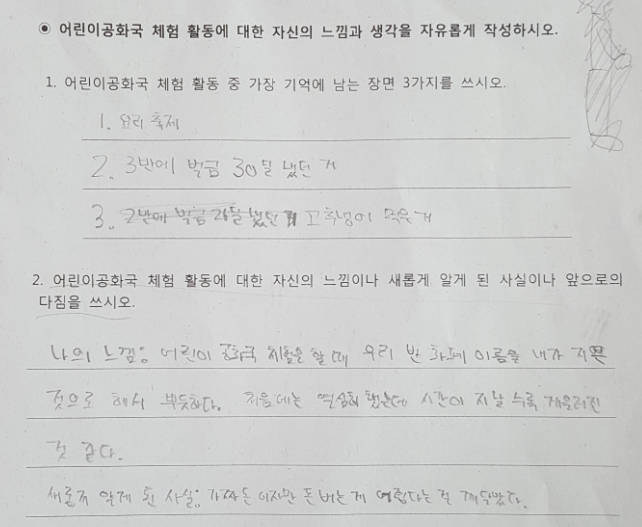 ◉ 어린이공화국 체험 활동에 대한 자신의 느낌과 생각을 자유롭게 작성하시오.
1. 어린이공화국 체험 활동 중 가장 기억에 남는 장면 3가지를 쓰시오.
1. 요리 축제
2. 3반에 벌금 30달 냈던 거
3. 2반에 벌금 달 냈던 먹은 거
2. 어린이공화국 체험 활동에 대한 자신의 느낌이나 새롭게 알게 된 사실이나 앞으로의
다짐을 쓰시오.
나의 느낌: 어린이 공화국 체험을 할 때 우리 반 화폐 이름을 내가 지은
것으로 해서 뿌듯하다. 처음에는 열심히 했는데 시간이 지날 수록 게을러진
것 같다.
새롭게 알게 된 사실: 가짜 돈 이지만 돈 버는 게 어렵다는 걸 깨달았다.